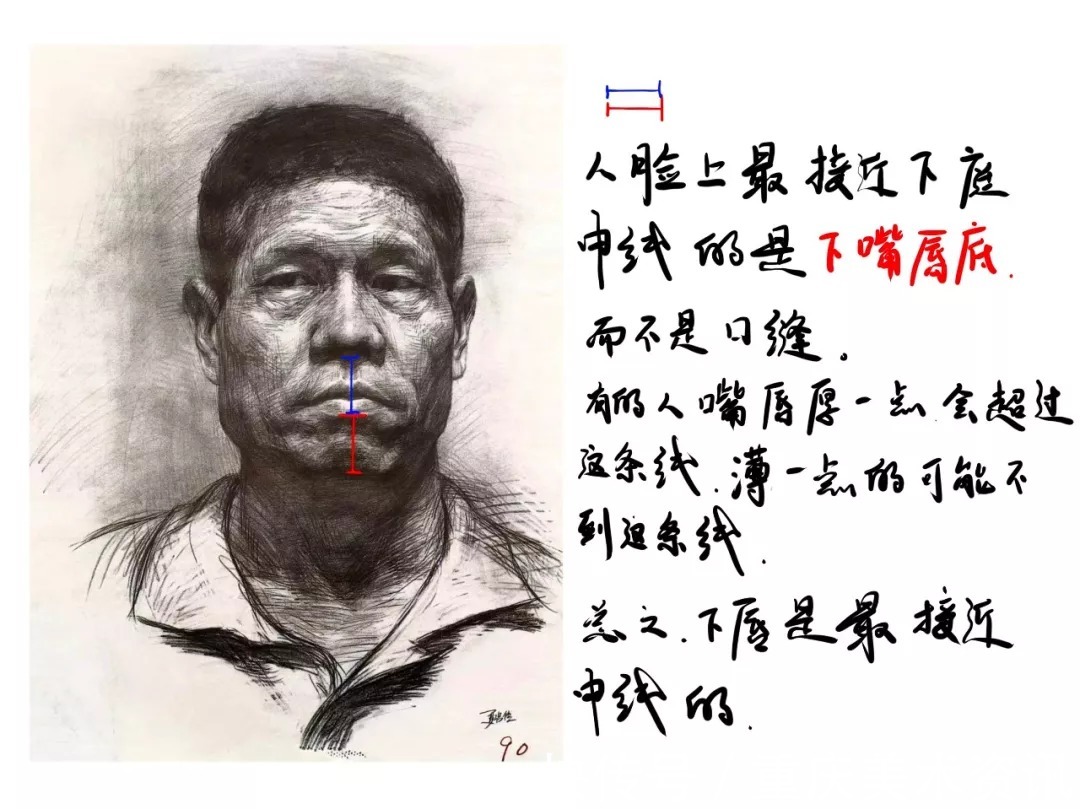 人脸上最接近下庭
中线的是下嘴唇底.
而不是口缝。
有的人嘴唇厚一点会超过
这条线.薄一点的可能不
到这条线.
总之.下唇是最接近
中线的.
90